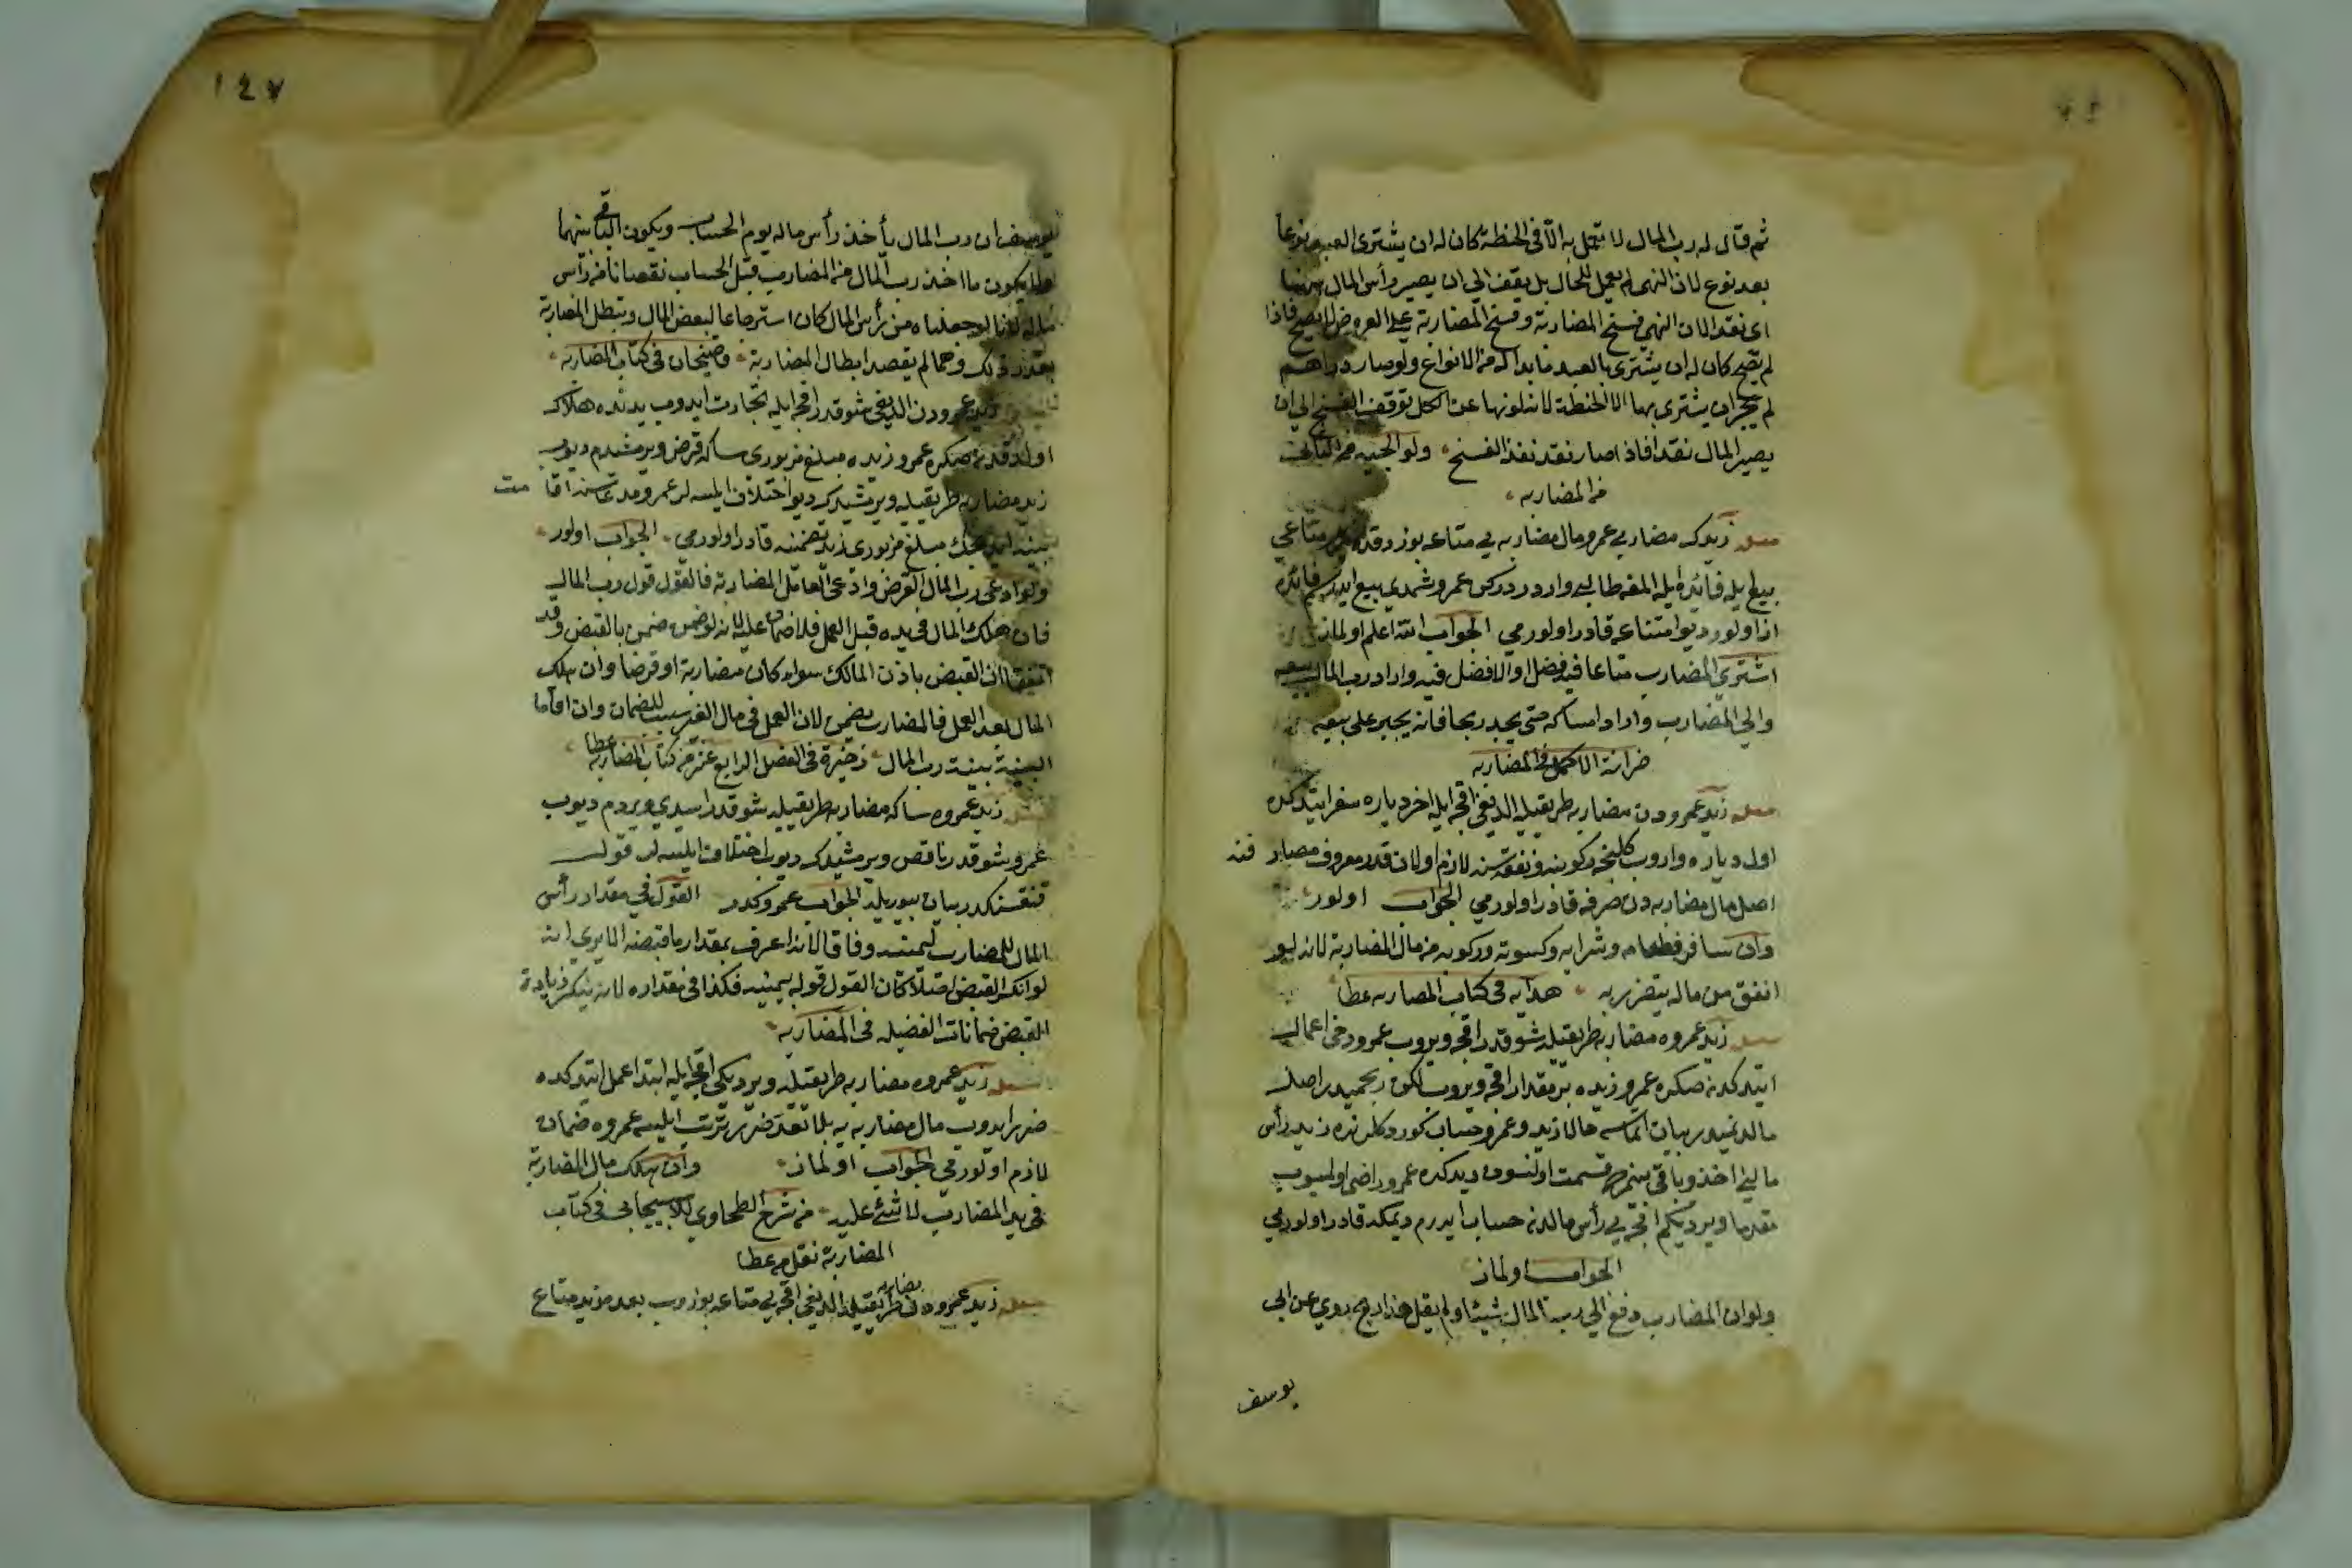 ثم قال له رب المال لا تعمل به الا في الحنطة كان له ان يشتري العبد نوعا
بعد نوع لان النهي لم يعمل للحال بل يقف الى ان يصير رأس المال
اى نقدا لان النهي فسخ المضاربة وفسخ المضاربة على العروض لا يصح فاذا
لم يصح كان له ان يشترى بالعبد ما بدا له من الانواع ولو صار دراهم
لم يجز ان يشترى بها الا الحنطة لانه لو نهاه عن الكل توقف الفسخ الى ان
يصير المال نقدا فاذا صار نقد نفذ الفسخ ولوالجيه من الثالث
من المضاربه
مسئله زيدكه مضاربى عمرو مال مضاربه يى متاعه بوزدقدن متاعى
بيع ايله فائده ايله المغه طالب وارد ركن عمرو شمدى بيع ايدرسم فائده
از اولور ديو امتناعه قادر اولورمى الجواب الله اعلم اولماز
اشترى المضارب متاعا فيه فضل او لا فضل فيه واراد رب المال بيعه
وابى المضارب واراد امساكه حتى يجد ربحا فانه يجبر على بيعه
خزانة الاكمل فى المضاربه
مسئله زيد عمرودن مضاربه طريقيله الديغى اقچه ايله اخر دياره سفر ايتدكده
اول دياره واروب كلنجه ركوبنه ونفقه سنه لازم اولان قدر معروف مصارفنه
اصل مال مضاربه دن صرفه قادر اولورمى الجواب اولور
وان سافر فطعامه وشرابه وكسوته وركوبه من مال المضاربة لانه لو
انفق من ماله يتضرر به هدايه فى كتاب المضاربه عطا
مسئله زيد عمروه مضاربه طريقيله شو قدر اقچه ويروب عمرو دخى اعمال
ايتدكدن صكره عمرو زيده بر مقدار اقچه ويروب لكن ربحميدر اصل
مالدنميدر بيان اتماسه حالا زيد وعمرو حساب كوردكلرنده زيد رأس
مالينى اخذ وباقى بينمزده قسمت اولنسون ديدكده عمرو راضى اولميوب
مقدما ويرديكم اقچه يى رأس مالدن حساب ايدرم ديمكه قادر اولورمى
الجواب اولماز
ولو ان المضارب دفع الى رب المال شيئا ولم يقل هذا ربح روى عن ابى
يوسف
١٤٧
يوسف ان رب المال يأخذ رأس ماله يوم الحساب ويكون الباقى بينهما
ولا يكون ما اخذ رب المال من المضارب قبل الحساب نقصانا من رأس
ماله لانا لو جعلناه من رأس المال كان استرجاعا لبعض المال وتبطل المضاربة
بقدر ذلك وهما لم يقصد ابطال المضاربة وقضيخان فى كتاب المضاربه
زيد عمرودن الديغى شو قدر اقچه ايله تجارت ايدوب يدنده هلاك
اولدقدن صكره عمرو زيده مبلغ مزبورى ساكه قرض ويرمشدم ديوب
زيد مضاربه طريقيله ويرمشيدك ديو اختلاف ايلسه لر عمرو مدعاسنه اقامت
بينه ايديجك مبلغ مزبورى زيده تضمينه قادر اولورمى الجواب اولور
ولو ادعى رب المال القرض وادعى العامل المضاربة فالقول قول رب المال
فان هلك المال في يده قبل العمل فلا ضمان عليه لانه لو ضمن ضمن بالقبض وقد
اتفقا ان القبض باذن المالك سواء كان مضاربة او قرضا وان هلك
المال بعد العمل فالمضارب يضمن لان العمل في مال الغير سبب للضمان وان اقاما
البينة بينة رب المال ذخيرة فى الفصل الرابع عشر من كتاب المضاربه عطا
مسئله زيد عمروه ساكه مضاربه طريقيله شو قدر اسدى ويردم ديوب
عمرو شو قدر ناقص ويرمشيدك ديو اختلاف ايلسه لر قول
قنقسنكدر بيان بيوريله الجواب عمروكدر القول في مقدار رأس
المال للمضارب ليمينه وفاقا لانه اعرف بمقدار ما قبضه الا يرى انه
لو انكر القبض اصلا كان القول قوله بيمينه فكذا فى مقداره لانه ينكر زيادة
القبض ضمانات الفضيليه فى المضاربه
مسئله زيد عمروه مضاربه طريقيله ويرديكى اقچه ايله ابتدا عمل ايتدكده
ضرر ايدوب مال مضاربه يه بلا تعد ضرر ترتب ايلسه عمروه ضمان
لازم اولورمى الجواب اولماز وان هلك مال المضاربة
فى يد المضارب لا شئ عليه من شرح الطحاوى للاسبيجابى فى كتاب
المضاربة نقل من عطا
مسئله زيد عمرودن مضاربه طريقيله الديغى اقچه يى متاعه بوزوب بعده زيد متاع